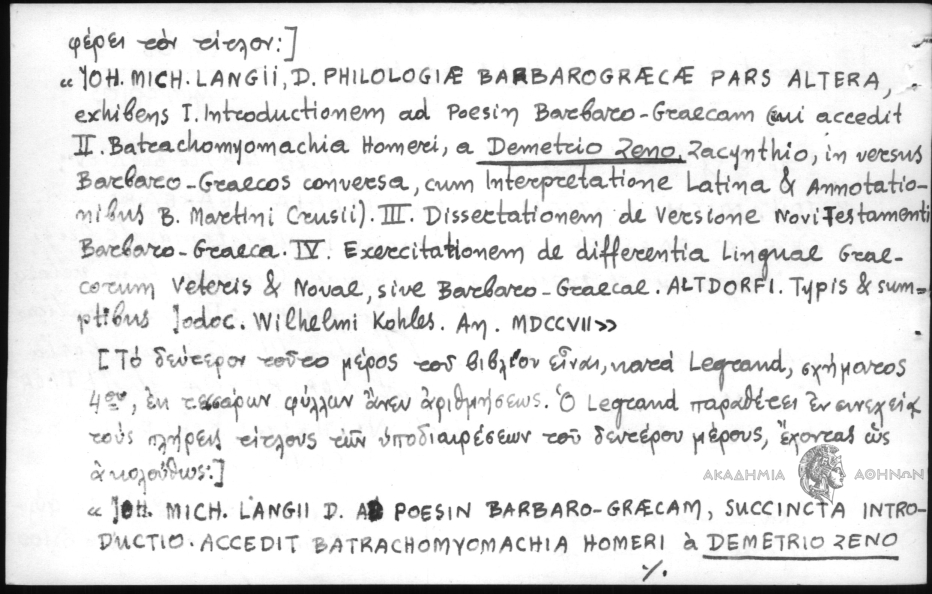 φέρει τὸν τίτλον:]
« JOH. MICH. LANGII, D. PHILOLOGIÆ BARBAROGRÆCÆ PARS ALTERA,
exhibens I. Introductionem ad Poesin Barbaro-Graecam (cui accedit
II. Batrachomyomachia Homeri, a Demetrio Zeno, Zacynthio, in versus
Barbaro-Graecos conversa, cum Interpretatione Latina & Annotatio-
nibus B. Martini Crusii). III. Dissertationem de Versione Novi Testamenti
Barbaro-Graeca. IV. Exercitationem de differentia Linguae Grae-
corum Veteris & Novae, sive Barbaro-Graecae. ALTDORFI. Typis & sum=
ptibus Jodoc. Wilhelmi Kohles. An. MDCCVII»
[Τὸ δεύτερον τοῦτο μέρος τοῦ βιβλίου εἶναι, κατὰ Legrand, σχήματος
4ου, ἐκ τεσσάρων φύλλων ἄνευ ἀριθμήσεως. Ὁ Legrand παραθέτει ἐν συνεχείᾳ
τοὺς πλήρεις τίτλους τῶν ὑποδιαιρέσεων τοῦ δευτέρου μέρους, ἔχοντας ὡς
ἀκολούθως:]
ΑΚΑΔΗΜΙΑ ΑΘΗΝΩΝ
« JOH. MICH. LANGII D. AD POESIN BARBARO-GRÆCAM, SUCCINCTA INTRO-
DUCTIO. ACCEDIT BATRACHOMYOMACHIA HOMERI à DEMETRIO ZENO
%.